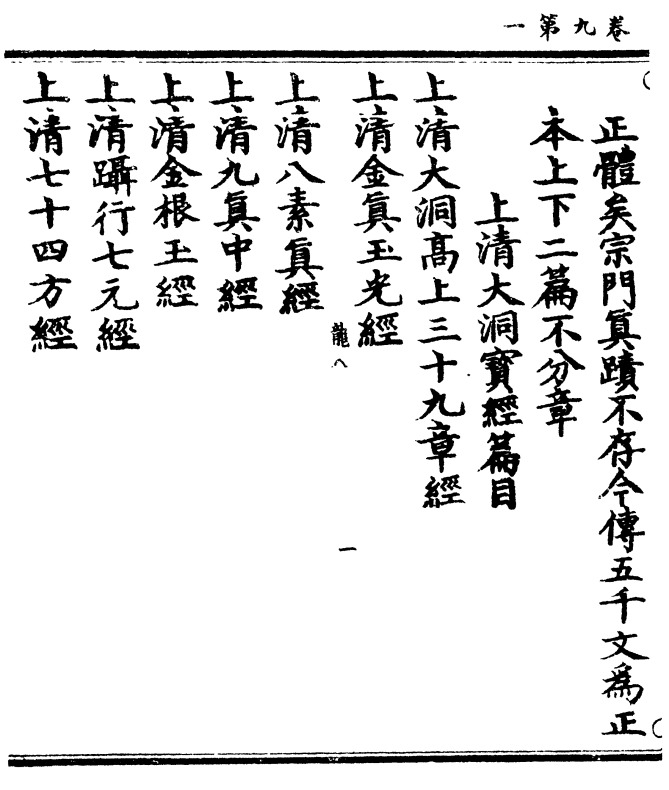 卷九第一
正體矣宗門眞蹟不存今傳五千文爲正
本上下二篇不分章
上清大洞寶經篇目
上清大洞高上三十九章經
上清金眞玉光經
龍八
一
上清八素眞經
上清九眞中經
上清金根玉經
上清躡行七元經
上清七十四方經